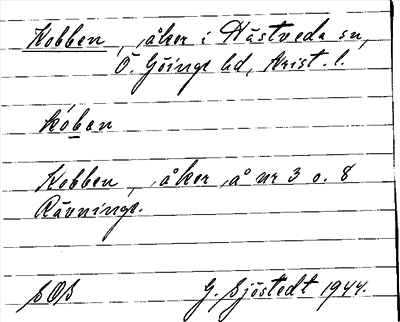 Kobben, åker i Hästveda sn,
Ö. Göinge hd, Krist. l.
kóban
Kobben, åker å nr 3 o. 8
Rävninge.
SOS G. Sjöstedt 1944.